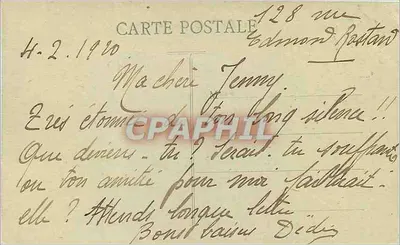 CARTE POSTALE
128 rue
Edmond Rostand
4-2-1920
Ma chère Jenny
Très étonnée de ton long silence !!
CPAPHIL
Que deviens-tu ? Serait-tu souffrante
ou ton amitié pour moi faiblirait-
elle ? Attends longue lettre
Bons baisers